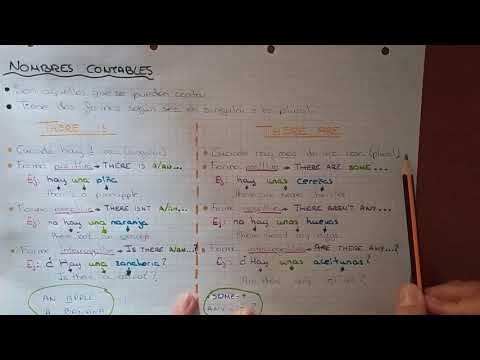 NOMBRES CONTABLES
• Son aquellos que se pueden contar
• Tiene dos formas según sea en singular o en plural.
THERE IS
- Cuando hay 1 cosa (singular)
- Forma positiva → THERE IS A/AN...
Ej: hay una piña
There is a pineapple
- Forma negativa → THERE ISN'T A/AN...
Ej: no hay una naranja
There isn't an orange
- Forma interrogativa → IS THERE A/AN...?
Ej: ¿Hay una zanahoria?
Is there a carrot?
AN APPLE
A BANANA
THERE ARE
- Cuando hay más de una cosa (plural)
- Forma positiva → THERE ARE SOME...
Ej: hay unas cerezas
There are some cherries
- Forma negativa → THERE AREN'T ANY...
Ej: no hay unos huevos
There aren't any eggs
- Forma interrogativa → ARE THERE ANY...?
Ej: ¿Hay unas aceitunas?
Are there any olives?
SOME = +
ANY